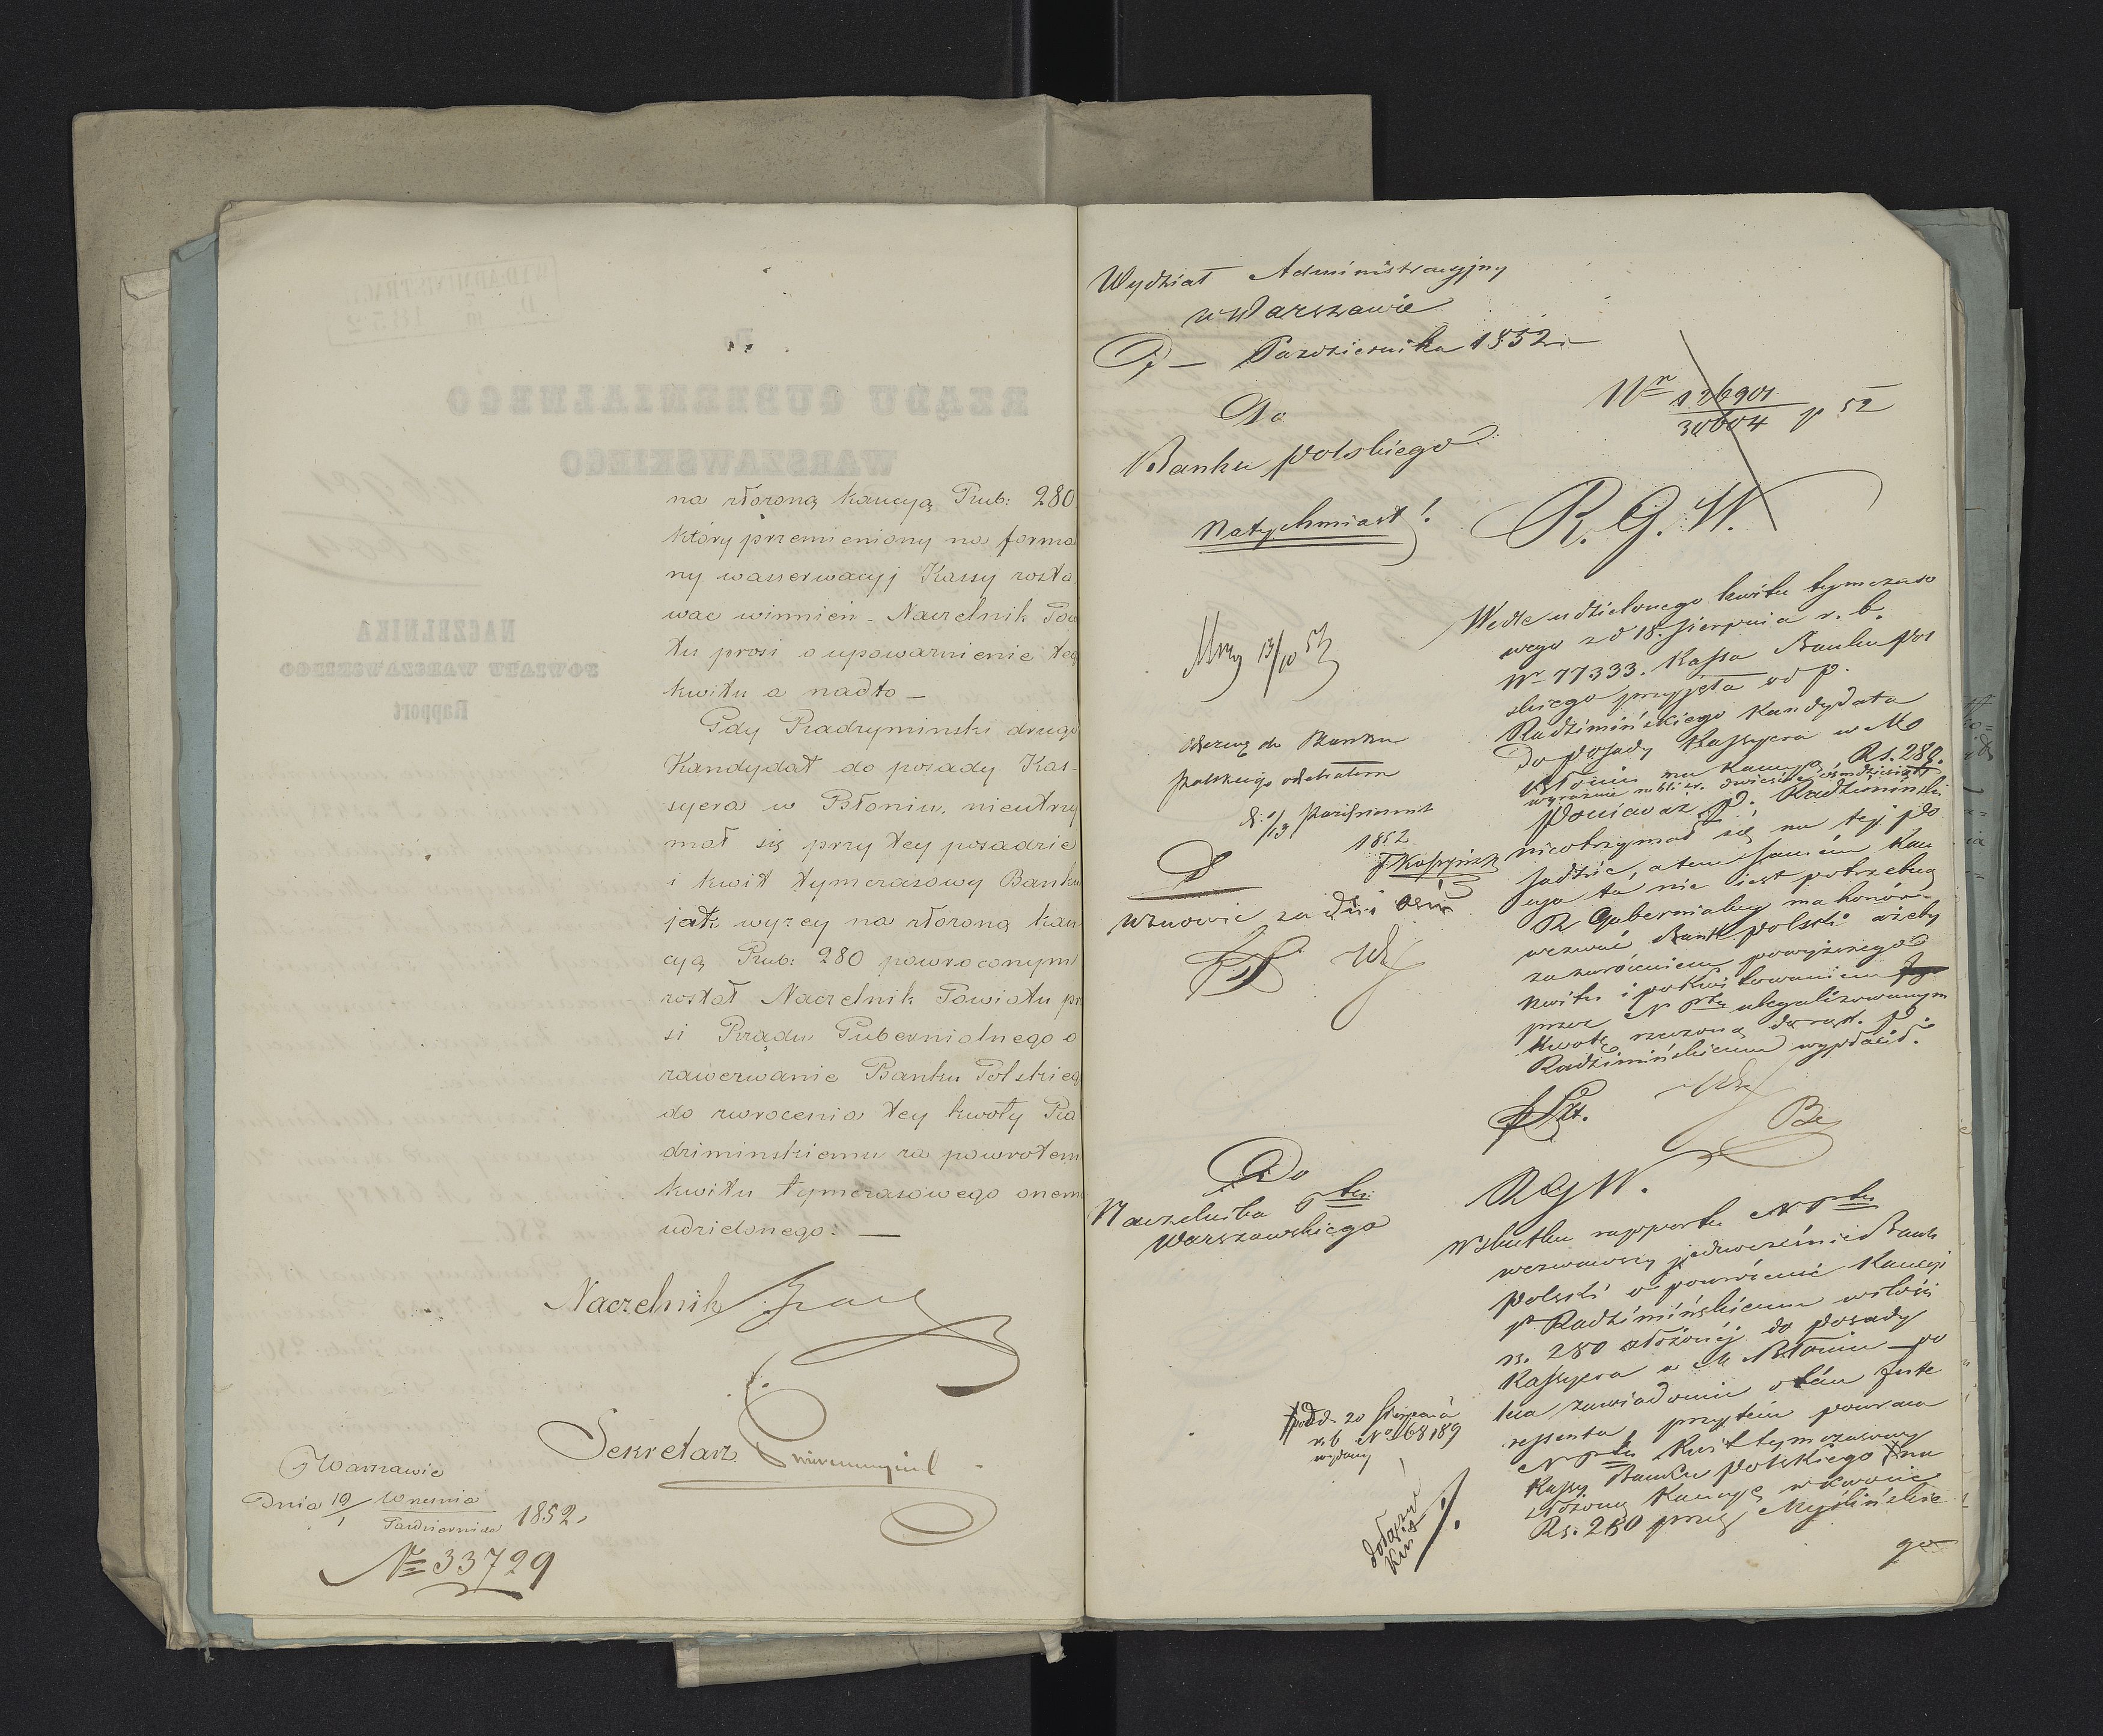 na złożoną kaucyą Rub: 280
który przemieniony na forma
ny wasserwacyj Kassy zosta
wac winnien - Naczelnik Pow
tu prosi o upoważnienie tey
kwitu a nadto —
Gdy Radzyminski drugi
Kandydat do posady Kas-
syera w Błoniu, nieutrzy
mał się przy tey posadzie
i kwit tymczasowy Banku
jak wyżey na złożoną kau
cyą Rub: 280 powroconym
został Naczelnik Powiatu pr
si Rządu Gubernialnego o
zawezwanie Banku Polskieg
do zwrocenia tey kwoty Ra
dziminskiemu za powrotem
kwitu tymczasowego onem
udzielonego: —
Naczelnik
Sekretarz
w Warszawie
Dnia 19/1 Września/Pazdziernika 1852.
№ 33729
Wydział Administracyjny
w Warszawie
D — Pazdziernika 1852 r
Do
Banku Polskiego
Natychmiast!
Nr 126901/30604 p 52
R. G. W.
Wedle udzielonego kwitu tymczaso
wego z d 18. Sierpnia r. b.
Nr 77333. Kassa Banku Pol
skiego przyjęła od P.
Radzimińskiego Kandydata
Do posady Kassyera w M
Błoniu na kaucyą Rs. 280.
wyraźnie rubli sr. dwieście ośmdziesiąt
Ponieważ P. Radzimiński
nieotrzymał się na tej po
sadzie, a tem samem kau
cya ta nie jest potrzebną
R Gubernialny ma honor
wezwać Bank Polski ażeby
za zwróceniem powyższego
kwitu i pokwitowaniem
przez N Ptu zlegalizowanym
kwotę rzeczoną do rąk P.
Radzimińskiemu wypłacił.
13/10 52
Odezwę do Banku
Polskiego odebrałem
d. 1/13 Pazdziernik
1852
wznowic za dni ośm
Do
Naczelnika Ptu
Warszawskiego
R G W.
W skutku rapportu N Ptu
wezwawszy jednocześnie Bank
Polski o powrócenie Kaucyi
P Radzimińskiemu w ilości
rs. 280 złożonej do posady
Kassyera w M Błoniu po
leca zawiadomić o tem Inte
ressenta przytem powraca
N Ptu Kwit tymczasowy
Kassy Banku Polskiego na
złożoną Kaucyę w kwocie
Rs. 280 przez Myślińskie
go
pod d. 20 Sierpnia
r. b No 68189
wydany
dołączyć
kwit